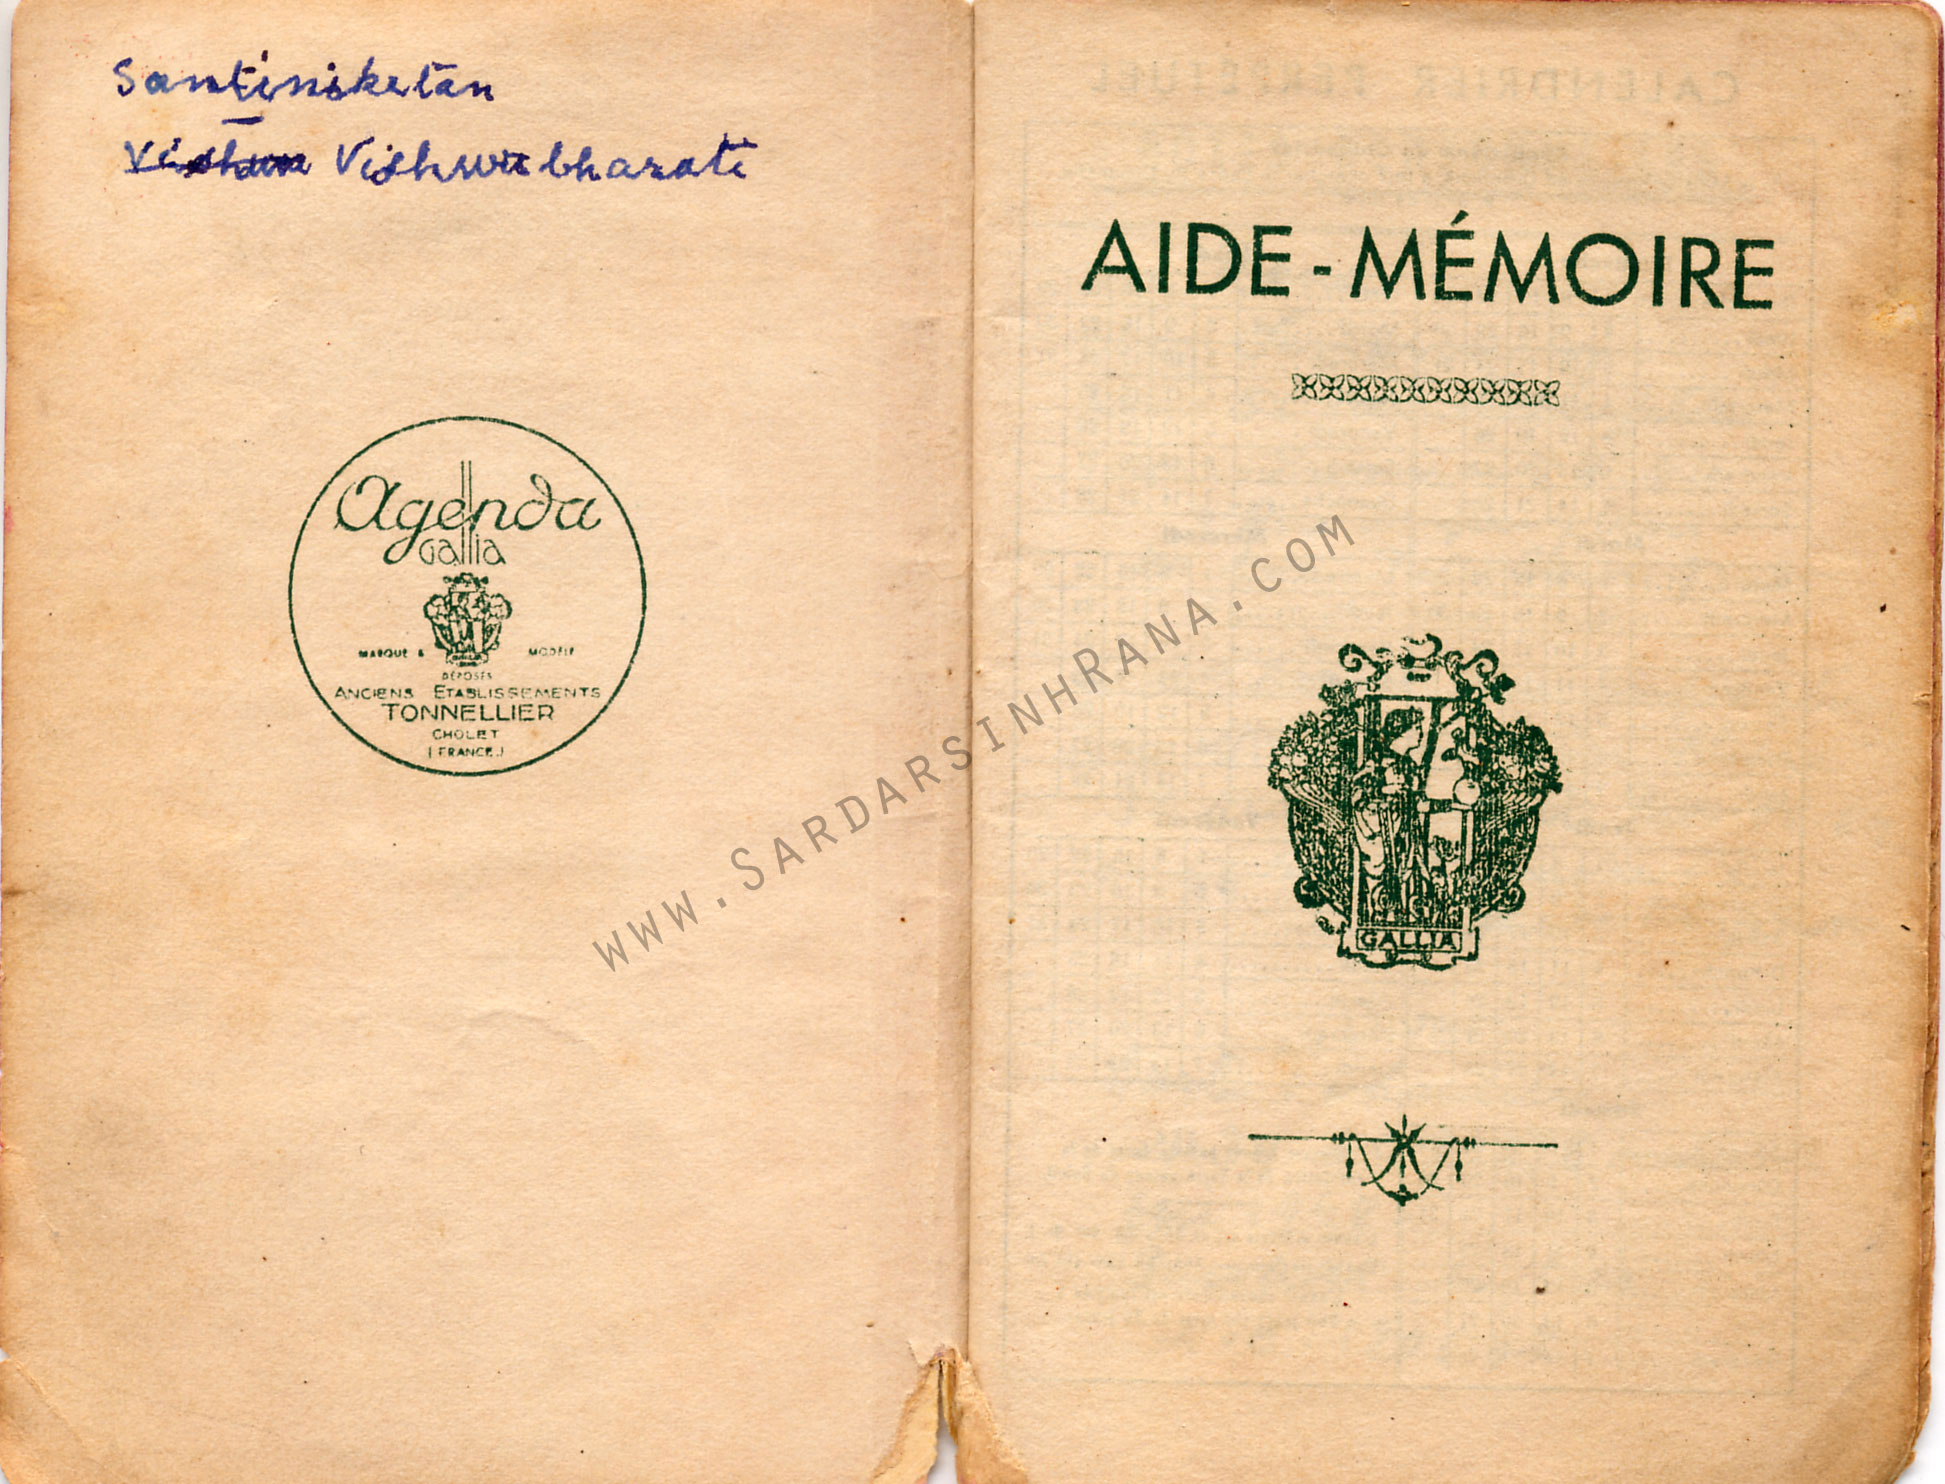 Santiniketan
Vishwa Vishwabharati
Agenda
Gallia
MARQUE & MODÈLE
DÉPOSÉS
ANCIENS ETABLISSEMENTS
TONNELLIER
CHOLET
(FRANCE)
AIDE-MÉMOIRE
GALLIA
www.SardarsinhRana.com